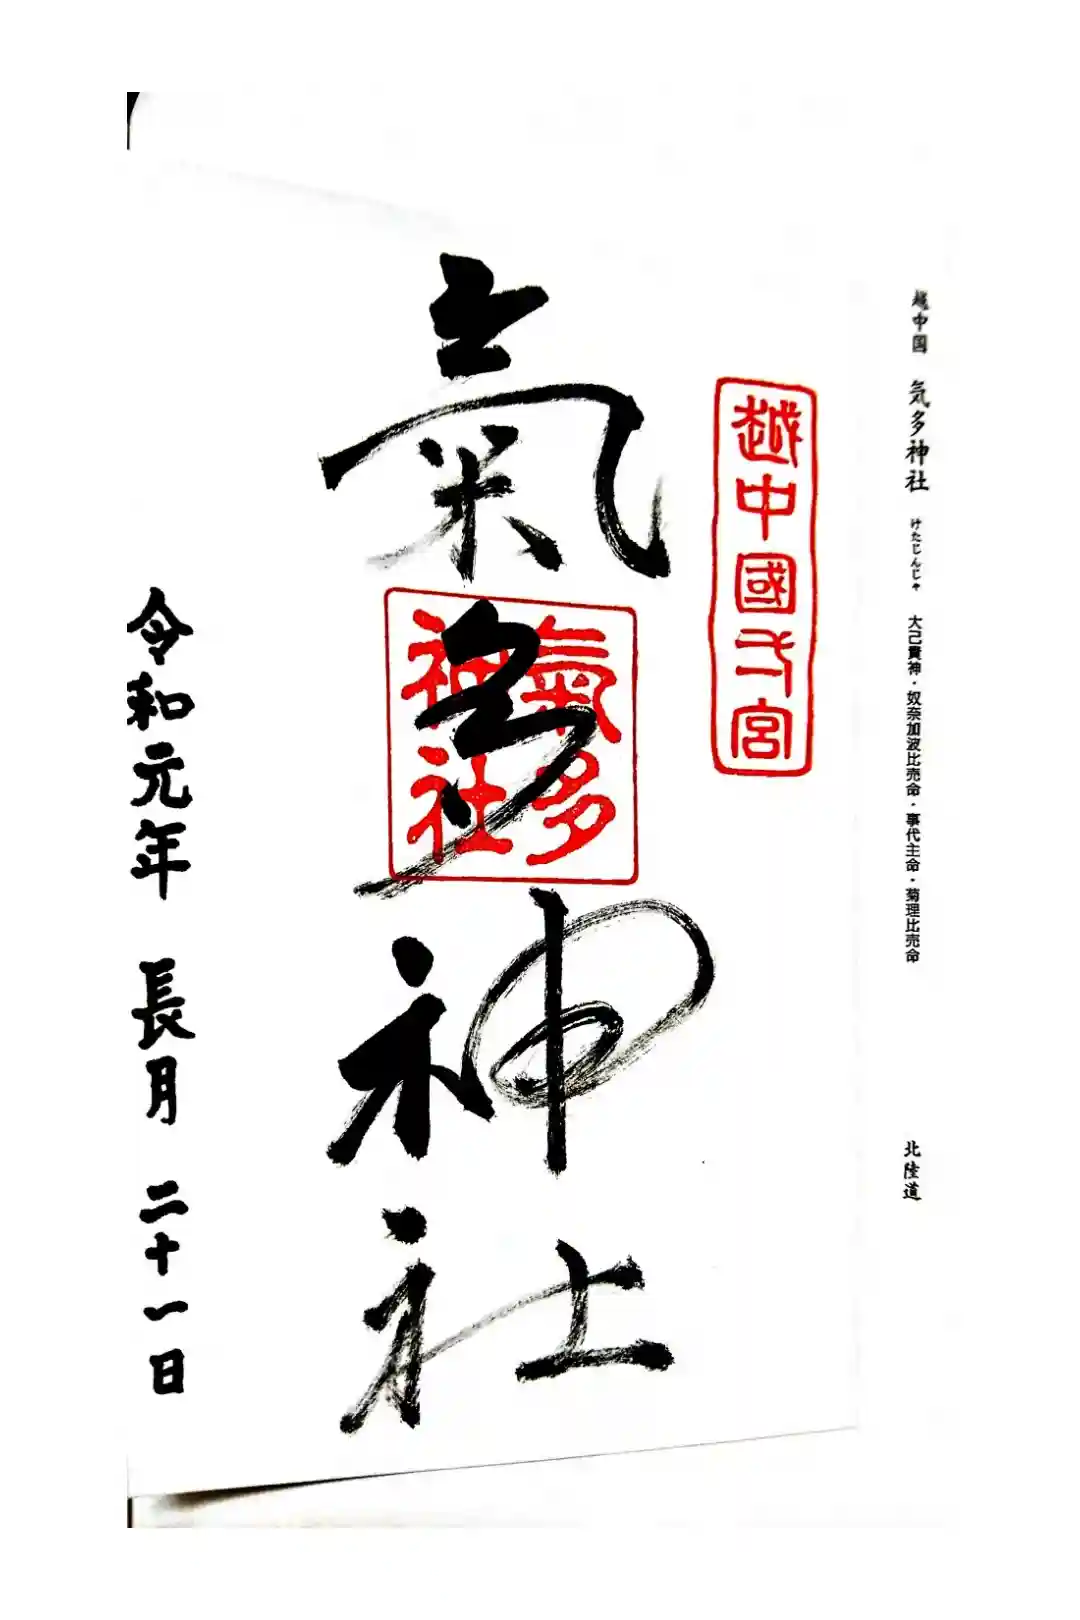 越中国 気多神社 けたじんじゃ 大己貴神・奴奈加波比売命・事代主命・菊理比売命 北陸道
越中國一宮
氣多神社
氣多
神社
令和元年 長月 二十一日